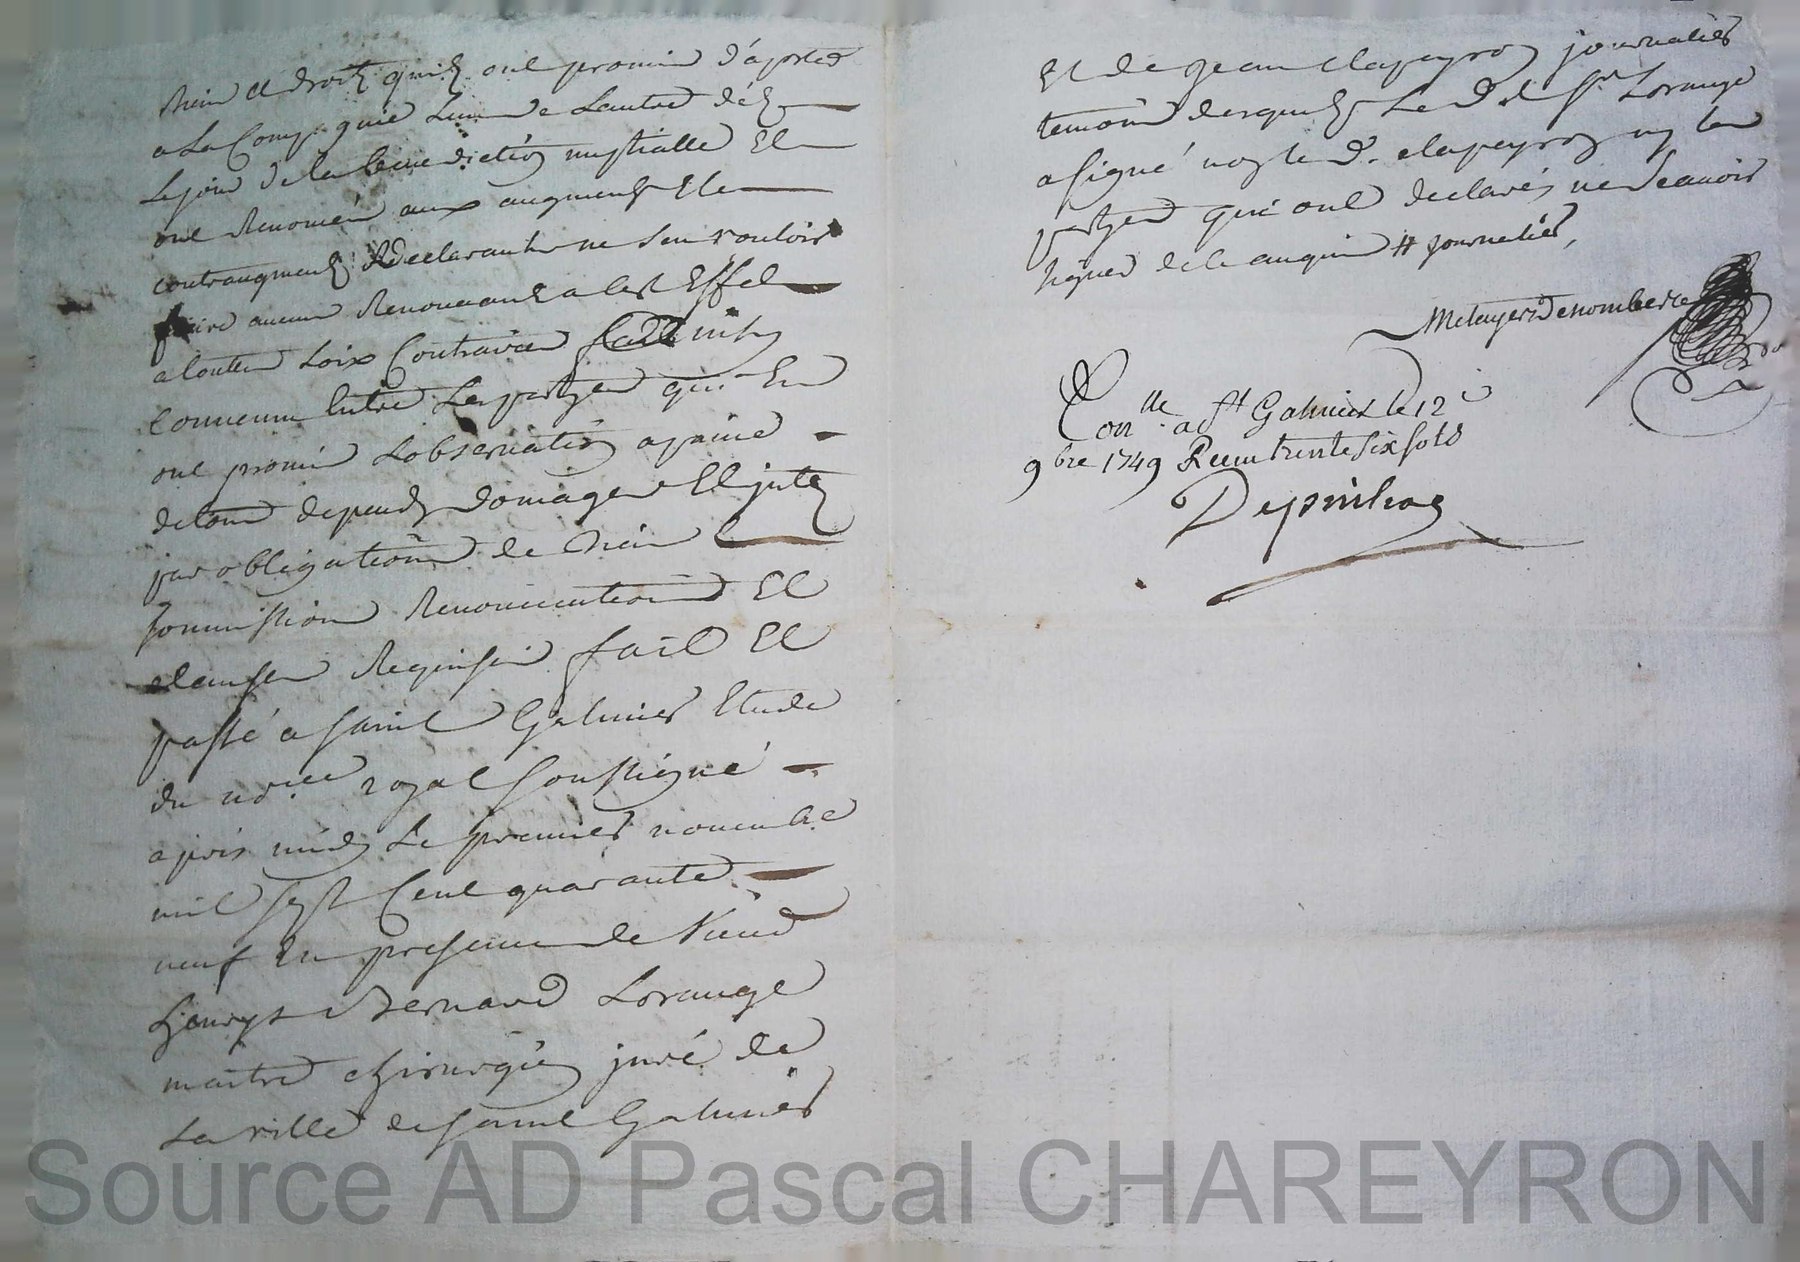 biens et droits quils ont promis d'aporter
a La Compagnie Lun de Lautre dès
Le jour de la benediction nuptialle Et
ont Renoncés aux augments Et
contraugments Declarants ne sen vouloir
faire aucun Renonceant a cest Effet
a toutes Loix Contraires ainsy
convenu Entre Les partyes qui En
ont promis Lobservation a peine
de tous depends domages Et jnts
par obligations de biens
soumissions Renonciations Et
clauses Requises fait Et
passé a saint Galmier Etude
du nore royal soussigné
apres midy Le premier novembre
mil sept Cent quarante
neuf En presence de sieur
henrys Bernard Lorange
maitre chirurgien juré de
La ville de saint Galmier
Et de jean clapeyron journalier
temoins desquels Le d. sr Lorange
a signé non le d. clapeyron ny les
partyes qui ont declarés ne scavoir
signer de ce enquis # journalier,
Metayer Denombret
Conlle a st Galmier le 12
9bre 1749 Receu trente six sols
Depinhac
Source AD Pascal CHAREYRON